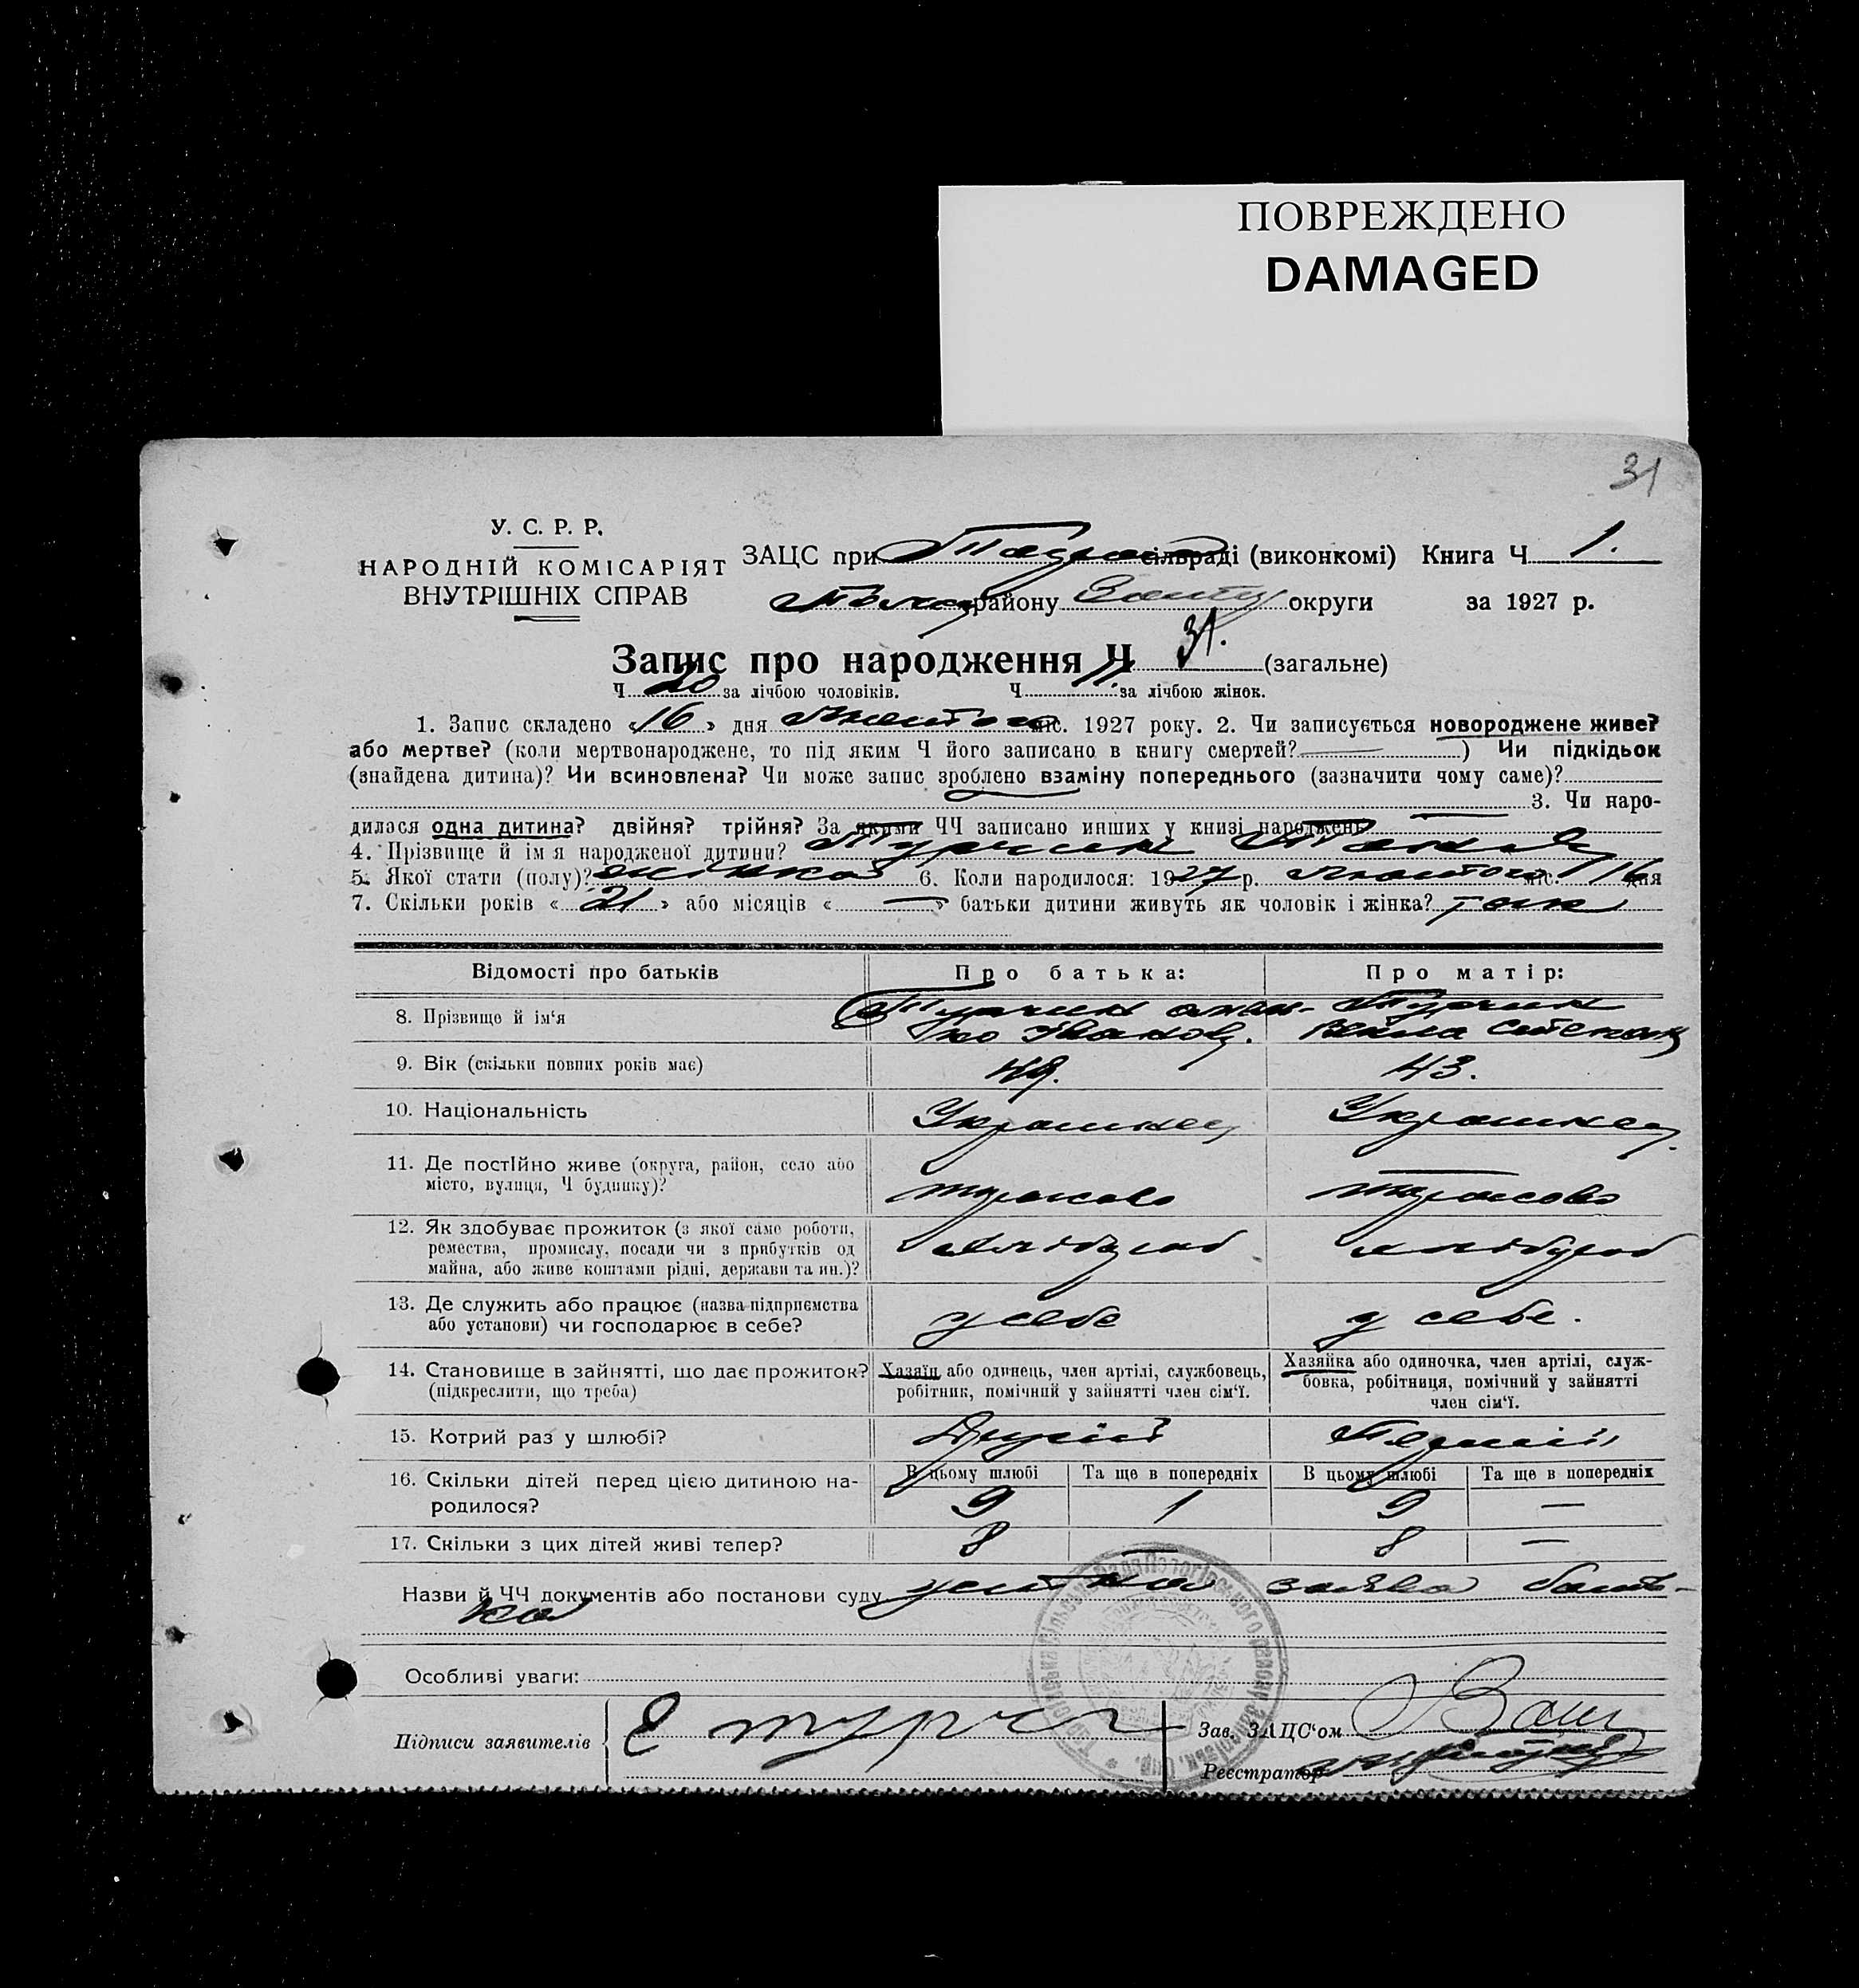 ПОВРЕЖДЕНО
DAMAGED
31
У. С. Р. Р.
НАРОДНІЙ КОМІСАРІЯТ
ВНУТРІШНІХ СПРАВ
ЗАЦС при сільраді (виконкомі) Книга Ч 1.
району округи за 1927 р.
Запис про народження Ч 31. (загальне)
Ч 20 за лічбою чоловіків. Ч 11 за лічбою жінок.
1. Запис складено «16» дня Лютого міс. 1927 року. 2. Чи записується новороджене живе?
або мертве? (коли мертвонароджене, то під яким Ч його записано в книгу смертей? —) Чи підкідьок
(знайдена дитина)? Чи всиновлена? Чи може запис зроблено взаміну попереднього (зазначити чому саме)?
3. Чи наро-
дилося одна дитина? двійня? трійня? За якими ЧЧ записано инших у книзі народжень —
4. Прізвище й ім'я народженої дитини? Турчин
5. Якої стати (полу)? жінка 6. Коли народилося: 1927 р. Лютого міс. 16 дня
7. Скільки років «21» або місяців «—» батьки дитини живуть як чоловік і жінка? так
Відомості про батьків Про батька: Про матір:
8. Прізвище й ім'я Турчин Турчин
9. Вік (скільки повних років має) 43.
10. Національність Українец Українец
11. Де постійно живе (округа, район, село або
місто, вулиця, Ч будинку)? тарасово тарасово
12. Як здобуває прожиток (з якої саме роботи,
ремества, промислу, посади чи з прибутків од
майна, або живе коштами рідні, держави та ин.)? хлібороб хлібороб
13. Де служить або працює (назва підприємства
або установи) чи господарює в себе? у себе у себе.
14. Становище в зайнятті, що дає прожиток?
(підкреслити, що треба)
Хазяїн або одинець, член артілі, службовець,
робітник, помічний у зайнятті член сім'ї.
Хазяйка або одиночка, член артілі, служ-
бовка, робітниця, помічний у зайнятті
член сім'ї.
15. Котрий раз у шлюбі? Другий Перший
16. Скільки дітей перед цією дитиною на-
родилося?
В цьому шлюбі Та ще в попередніх В цьому шлюбі Та ще в попередніх
9 1 9 —
17. Скільки з цих дітей живі тепер? 8 — 8 —
Назви й ЧЧ документів або постанови суду устна заява бать-
ка
Особливі уваги:
Підписи заявителів
Зав. ЗАЦС'ом
Реєстратор